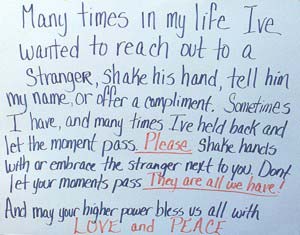 Many times in my life Ive
wanted to reach out to a
Stranger, shake his hand, tell him
my name, or offer a compliment. Sometimes
I have, and many times I've held back and
let the moment pass. Please shake hands
with or embrace the stranger next to you. Dont
let your moments pass They are all we have!
And may your higher power bless us all with
LOVE and PEACE